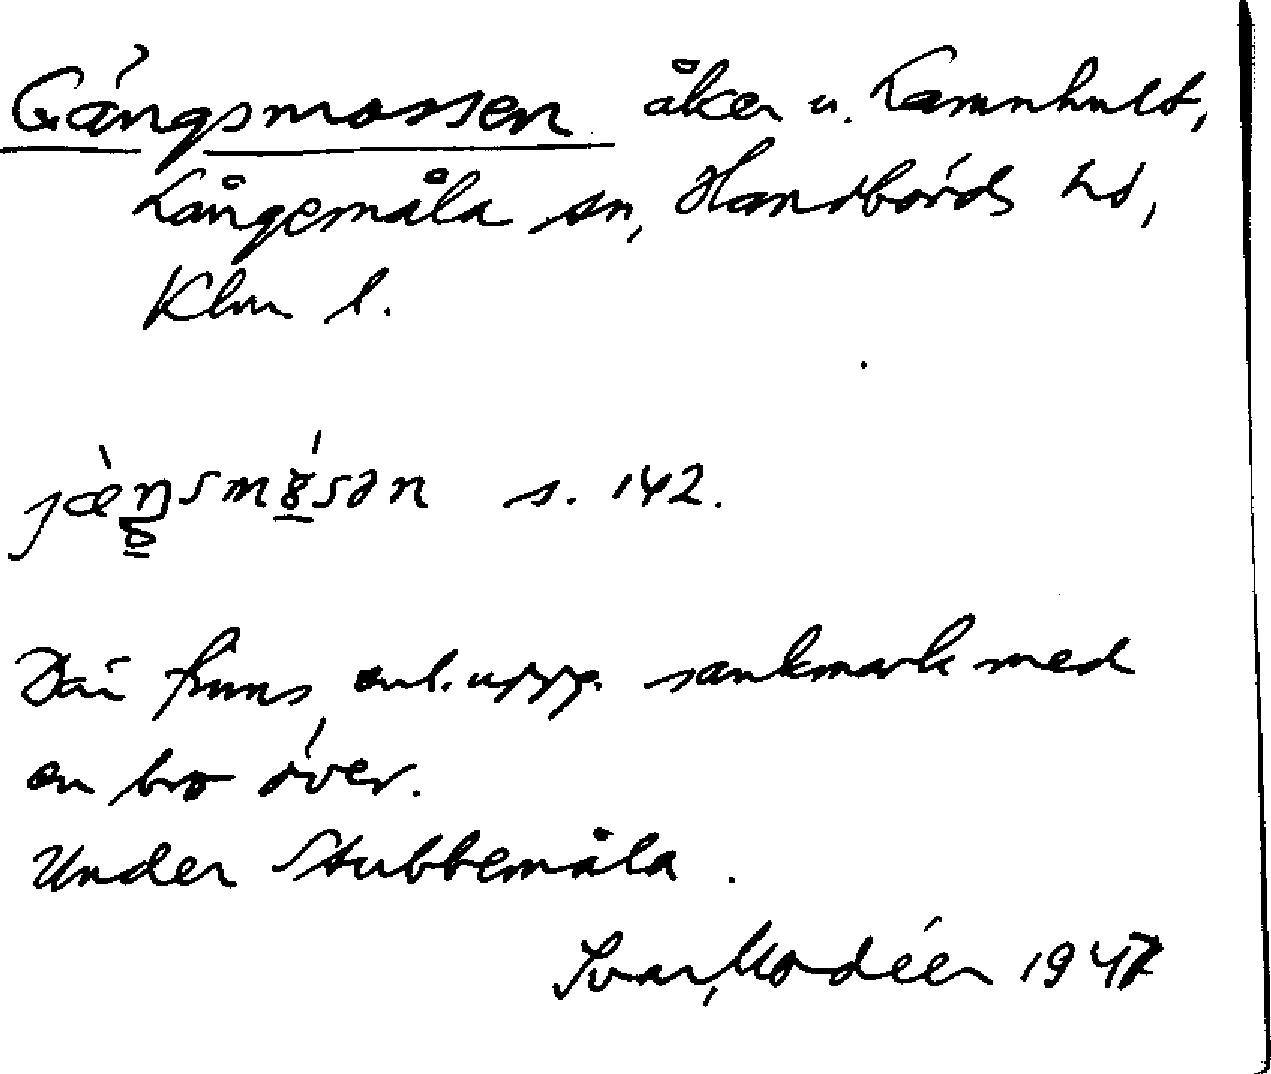 Gängsmossen åker u. Lammhult,
Långemåla sn, Handbörds hd,
Klm l.
s. 142.
Där finns enl. uppg. sankmark med
en bro över.
Under Stubbemåla.
Ivar Modéer 1947